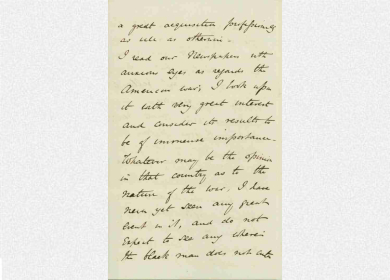 a great acquisition professionally
as well as otherwise.
I read our Newspapers with
anxious eyes as regards the
American war. I look upon
it with very great interest
and consider its results to
be of immense importance.
Whatever may be the opinion
in that country as to the
nature of the war, I have
never yet seen any great
event in it, and do not
expect to see any wherein
the black man does not